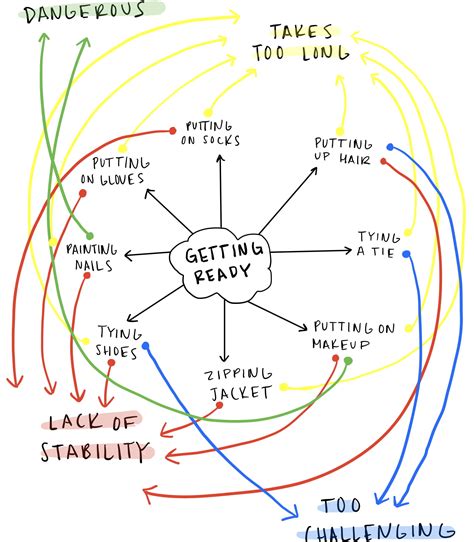 DANGEROUS
TAKES
TOO LONG
PUTTING
ON SOCKS
PUTTING
UP HAIR
PUTTING
ON GLOVES
GETTING
READY
TYING
A TIE
PAINTING
NAILS
TYING
SHOES
PUTTING ON
MAKEUP
ZIPPING
JACKET
LACK OF
STABILITY
TOO
CHALLENGING